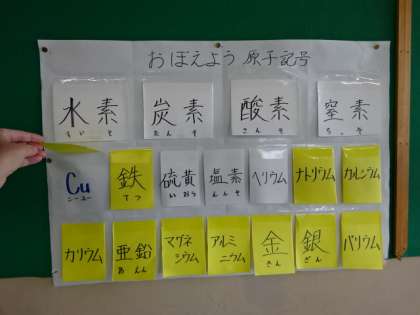 おぼえよう 原子記号
水素 炭素 酸素 窒素
すいそ たんそ さんそ ちっそ
Cu 鉄 硫黄 塩素 ヘリウム ナトリウム カルシウム
シーユー てつ いおう えんそ
カリウム 亜鉛 マグネシウム アルミニウム 金 銀 バリウム
あえん きん ぎん